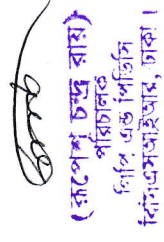 (রূপেশ চন্দ্র রায়)
পরিচালক
পিপি এন্ড পিডিসি
বিসিএসআইআর, ঢাকা।